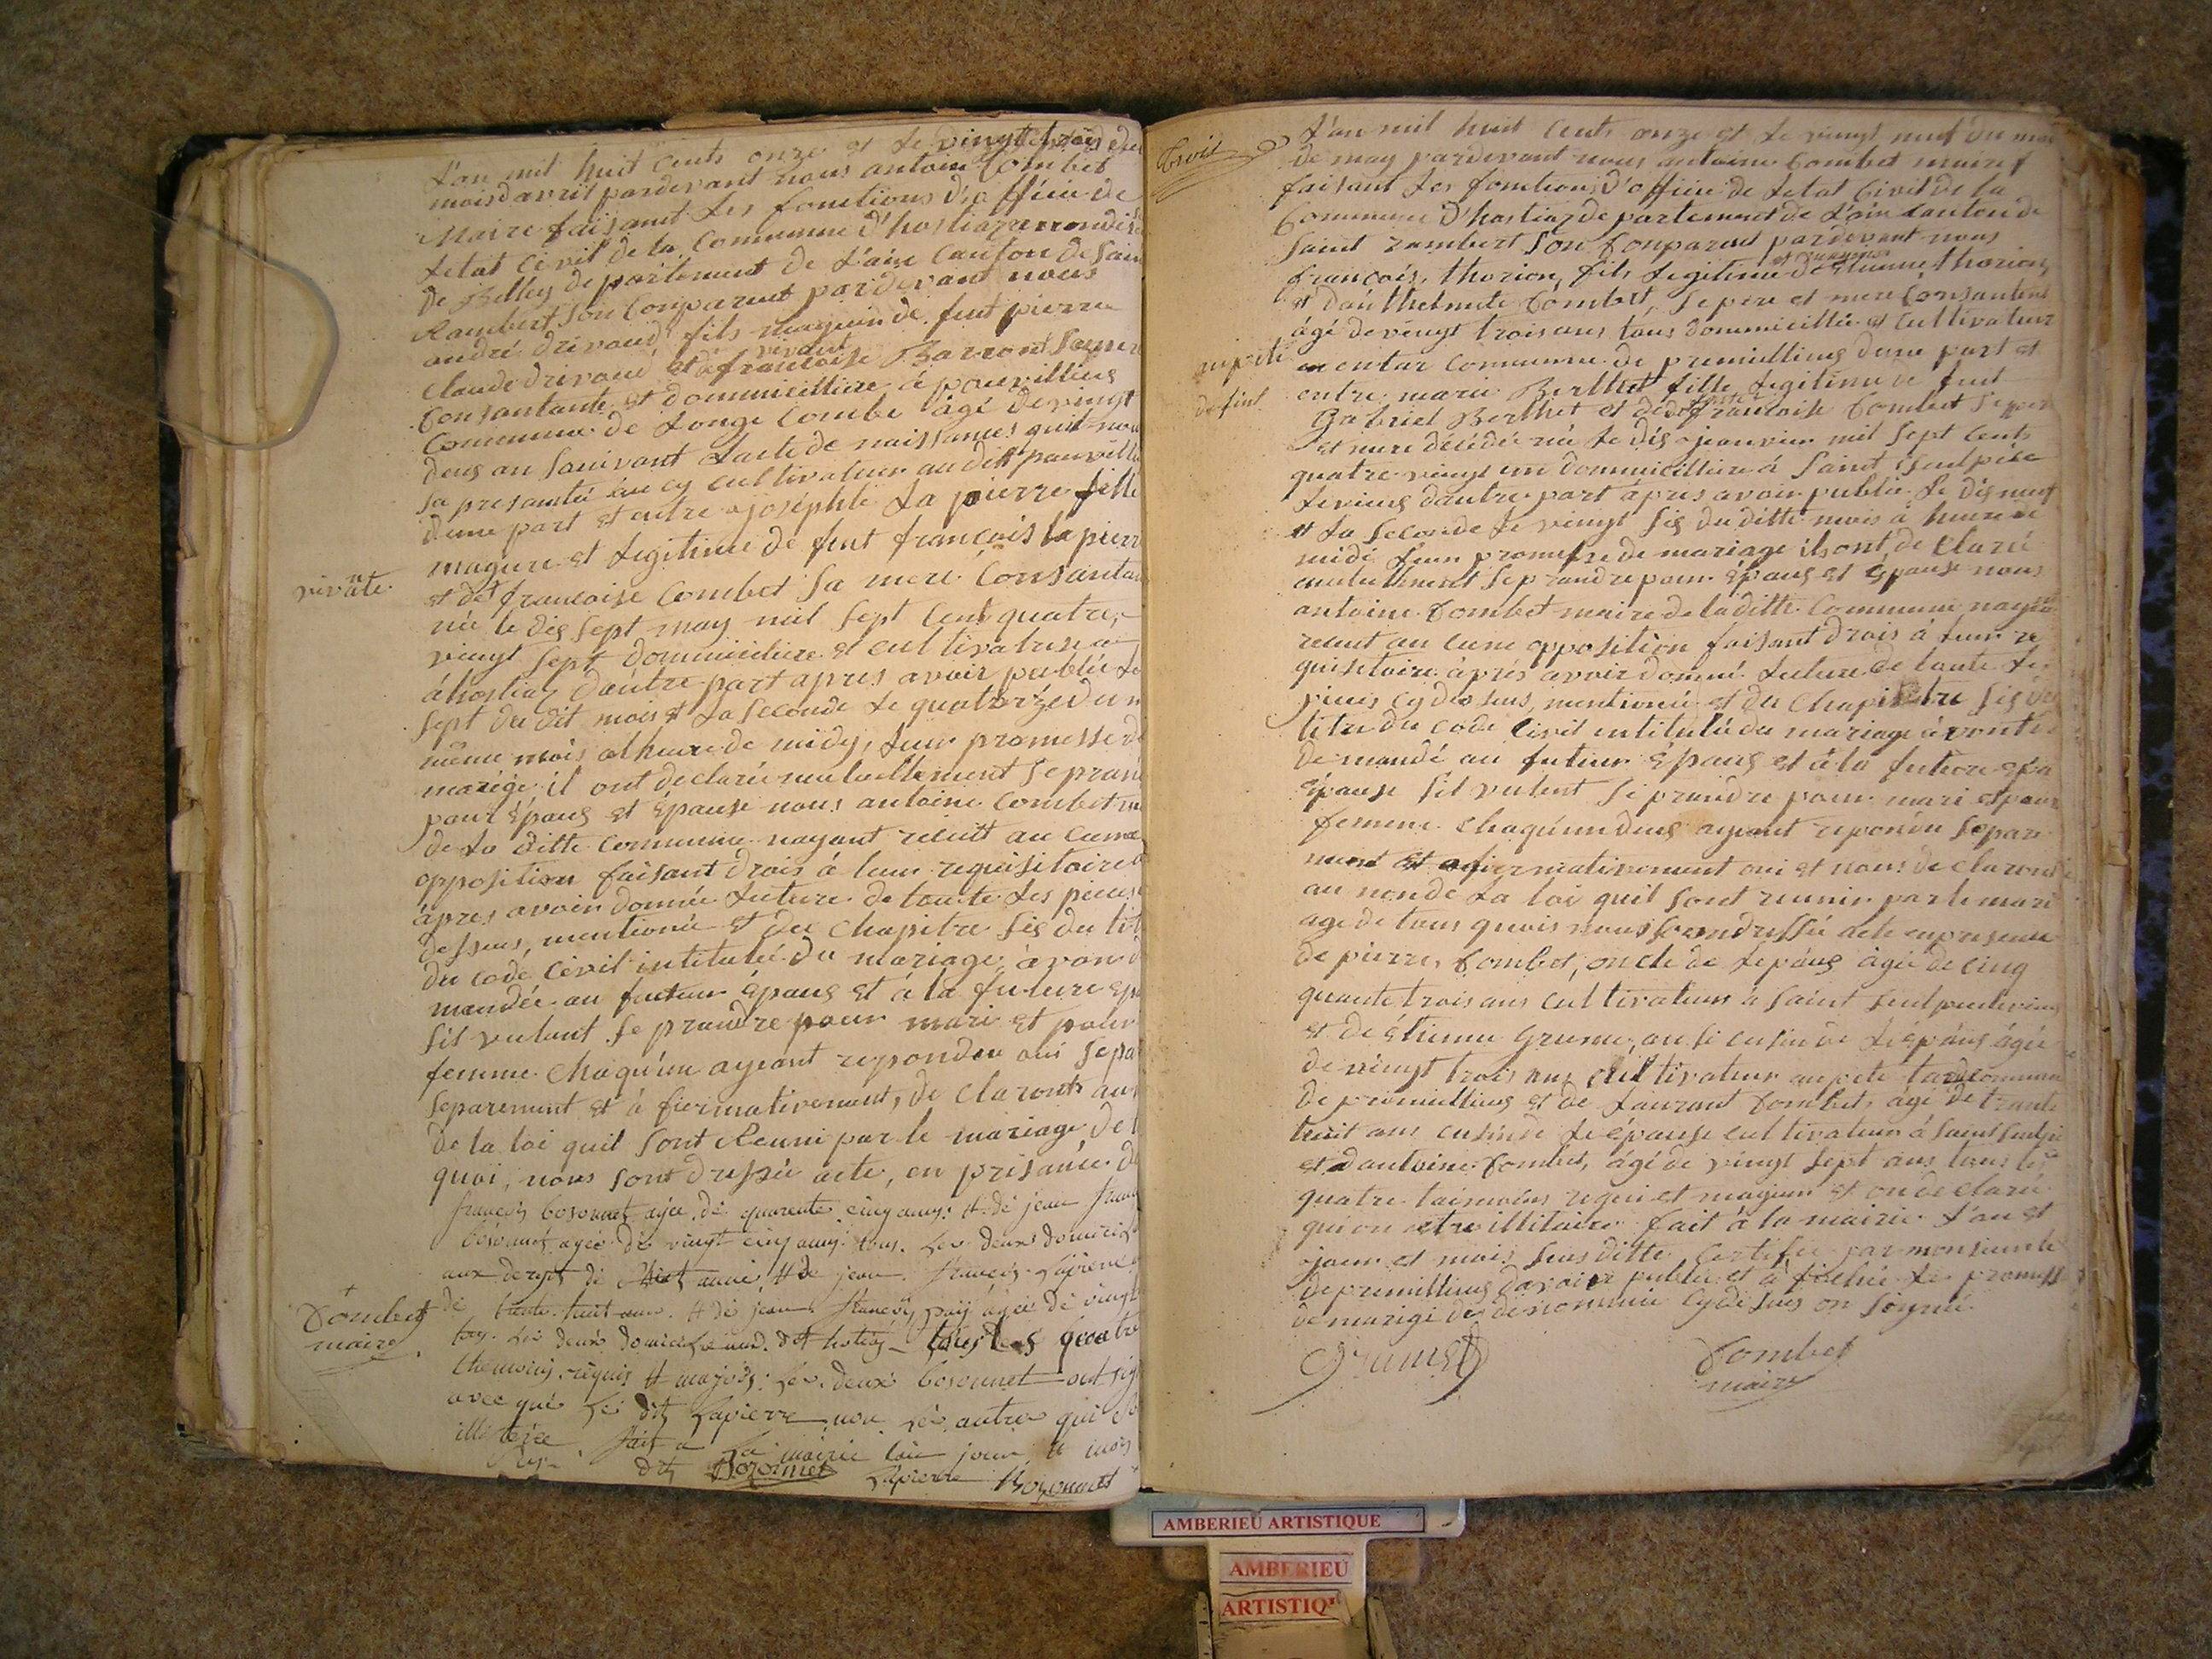 L'an mil huit cents onze et le vingt trois du
mois davril pardevant nous antoine Combet
Maire faisant les fonctions d'officie de
Letat Civil de la Commune d'hostiaz arrondise
de Belley departement de L'ain Canton de Sain
Rambert Son Conparent pardevant nous
andré drivaud fils mageur de feut pierre
vivant
Claude drivaud et de francoise Barront Samere
Consantante et dommicilliere à pourvillieu
Commune de Longe Combe âgé de vingt
deus an Souivant Lacte de naissances quil nou
sa presantée cultivateur au dit
dune part et entre josephte La pierre fille
magure et Legitime de feut francois la pierr
vivante
et de francoise Combet Sa mere Consantan
née le dis sept may mil sept Cent quatre
vingt sept dommiciliere et cultivatrise
à hostiaz dautre part apres avoir publié Le
sept du dit mois et La Seconde Le quatorze du m
même mois alheure de midy, Leur promesse de
mariage il ont declaré mutuellement se prand
pour Épous et Épause nous antoine Combet m
de La ditte Commune nayant recut au cune
opposition faisant drois à leur requisitoire
àpres avoir donnée Lecture de toute Les pieces
dessus, mentionée et du Chapitre Sis du tit
du code Civil intitulé du mariage, àvons d
mandée au futeur Épaus et à la future Épa
Sil veulent Se prandre pour mari et pour
femme Chaqu'un ayeant repondu oui Sepa
Separement et à firmativement, de Claronts au
de la loi quil Sont Reuni par le mariage de t
quoi, nous Sont dressée acte, en prisance de
francois bosonnet agée de quarente cinq anns et de jean franc
bosonnet agée de vingt cinq anns tous Les deux domicil
et de jean francois Lapierre
de trente huit ans et de jean francois agée de vingt
Combet
maire
Les deux tous Les quatre
requis et majors Les deux bosonnet ont sig
avec Le dit Lapierre non Les autres qui
fait a La mairie Lan jour et mois
Bozonnet Lapierre Bozonnet
Trois
L'an mil huit Cents onze et Le vingt neuf du moi
de may pardevant nous antoine Combet maire
faisant Les fonctions d'officie de Letat Civil de la
Commune d'hostiaz departement de L'ain Canton de
Saint rambert Son Conparent pardevant nous
francois, thorion, fils Legitime et mageur d'Etienne thorion
et danthelmete Combet, Se pere et mere Consantent
âgé de vingt trois ans tous dommicillié et Cultivateur
Commune de premillieu dune part et
entre marie Berthet fille Legitime de feut
Gabriel Berthet et de francoise Combet Se pere
et mere décédée né Le dis janvier mil Sept Cents
quatre vingt un dommicilliere à Saint Seulpice
Levieus dautre part àpres avoir publié Le dis neuf
et La Seconde Le vingt Sis du ditte mois à heure de
midi Leur promesse de mariage ils ont de Claré
mutuellement Se prandre pour Épaus et Épause nous
antoine Combet maire de laditte Commune nayan
recut au cune opposition faisant drois à Leur re
quisitoire àprés avoir donné Lecture de toute Les
pieces cy dessus, mentionné et du Chapitre Sis du
titre du code Civil intitulé du mariage àvont
de mandé au future Épaus et à la future Epa
Épause Sil veulent Se prandre pour mari et pour
femme Chaqu'un deus ayeant repondu Separe
ment et afirmativement oui et nous declaront
au nonde La loi quil Sont reunir par le mari
age de tous quois nous Son dressée acte enpresence
de pierre, Combet, oncle de Lepaus âgée de Cinq
quante trois ans cultivateur à Saint
et d'Étienne Grumet, de Lépaus âgée
de vingt trois ans Cultivateur Commune
de premillieu et de Laurant Combet, âgé de trante
huit ans cusin de Lépause cultivateur à Saint
et dantoine Combet, âgé de vingt Sept ans tous Les
quatre taimoins requi et mageur et on de claré
fait à la mairie L'an et
jour et mois Sus ditte Certifié par monsieur le
de premillieu davoier publié et à fiché Les promess
de marige des dénommé cy desus on Soigné
Grumet
Combet
maire
AMBERIEU ARTISTIQUE
AMBERIEU
ARTISTIQ